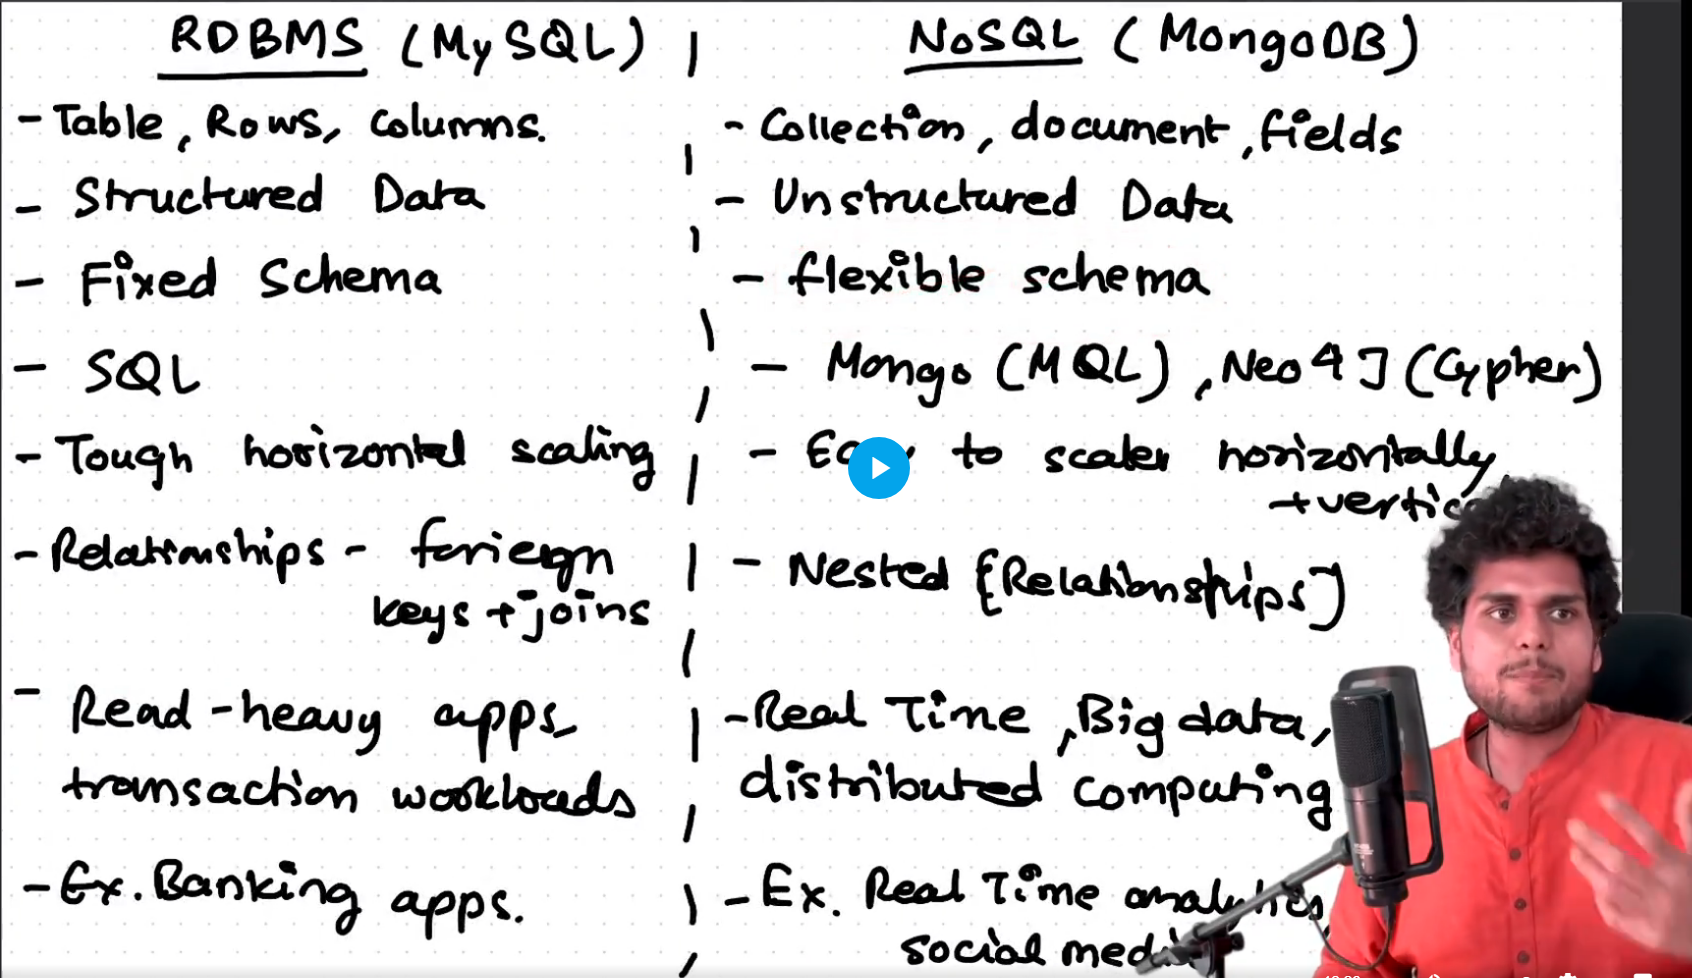 RDBMS (MySQL)
- Table, Rows, columns.
- Structured Data
- Fixed Schema
- SQL
- Tough horizontal scaling
- Relationships - foriegn
keys + joins
- Read-heavy apps
transaction workloads
- Ex. Banking apps.
NoSQL (MongoDB)
- Collection, document, fields
- Unstructured Data
- flexible schema
- Mongo (MQL), Neo4J (Cypher)
- to scale horizontally
+
- Nested {Relationships}
- Real Time, Big data,
distributed computing
- Ex. Real Time analytics
social